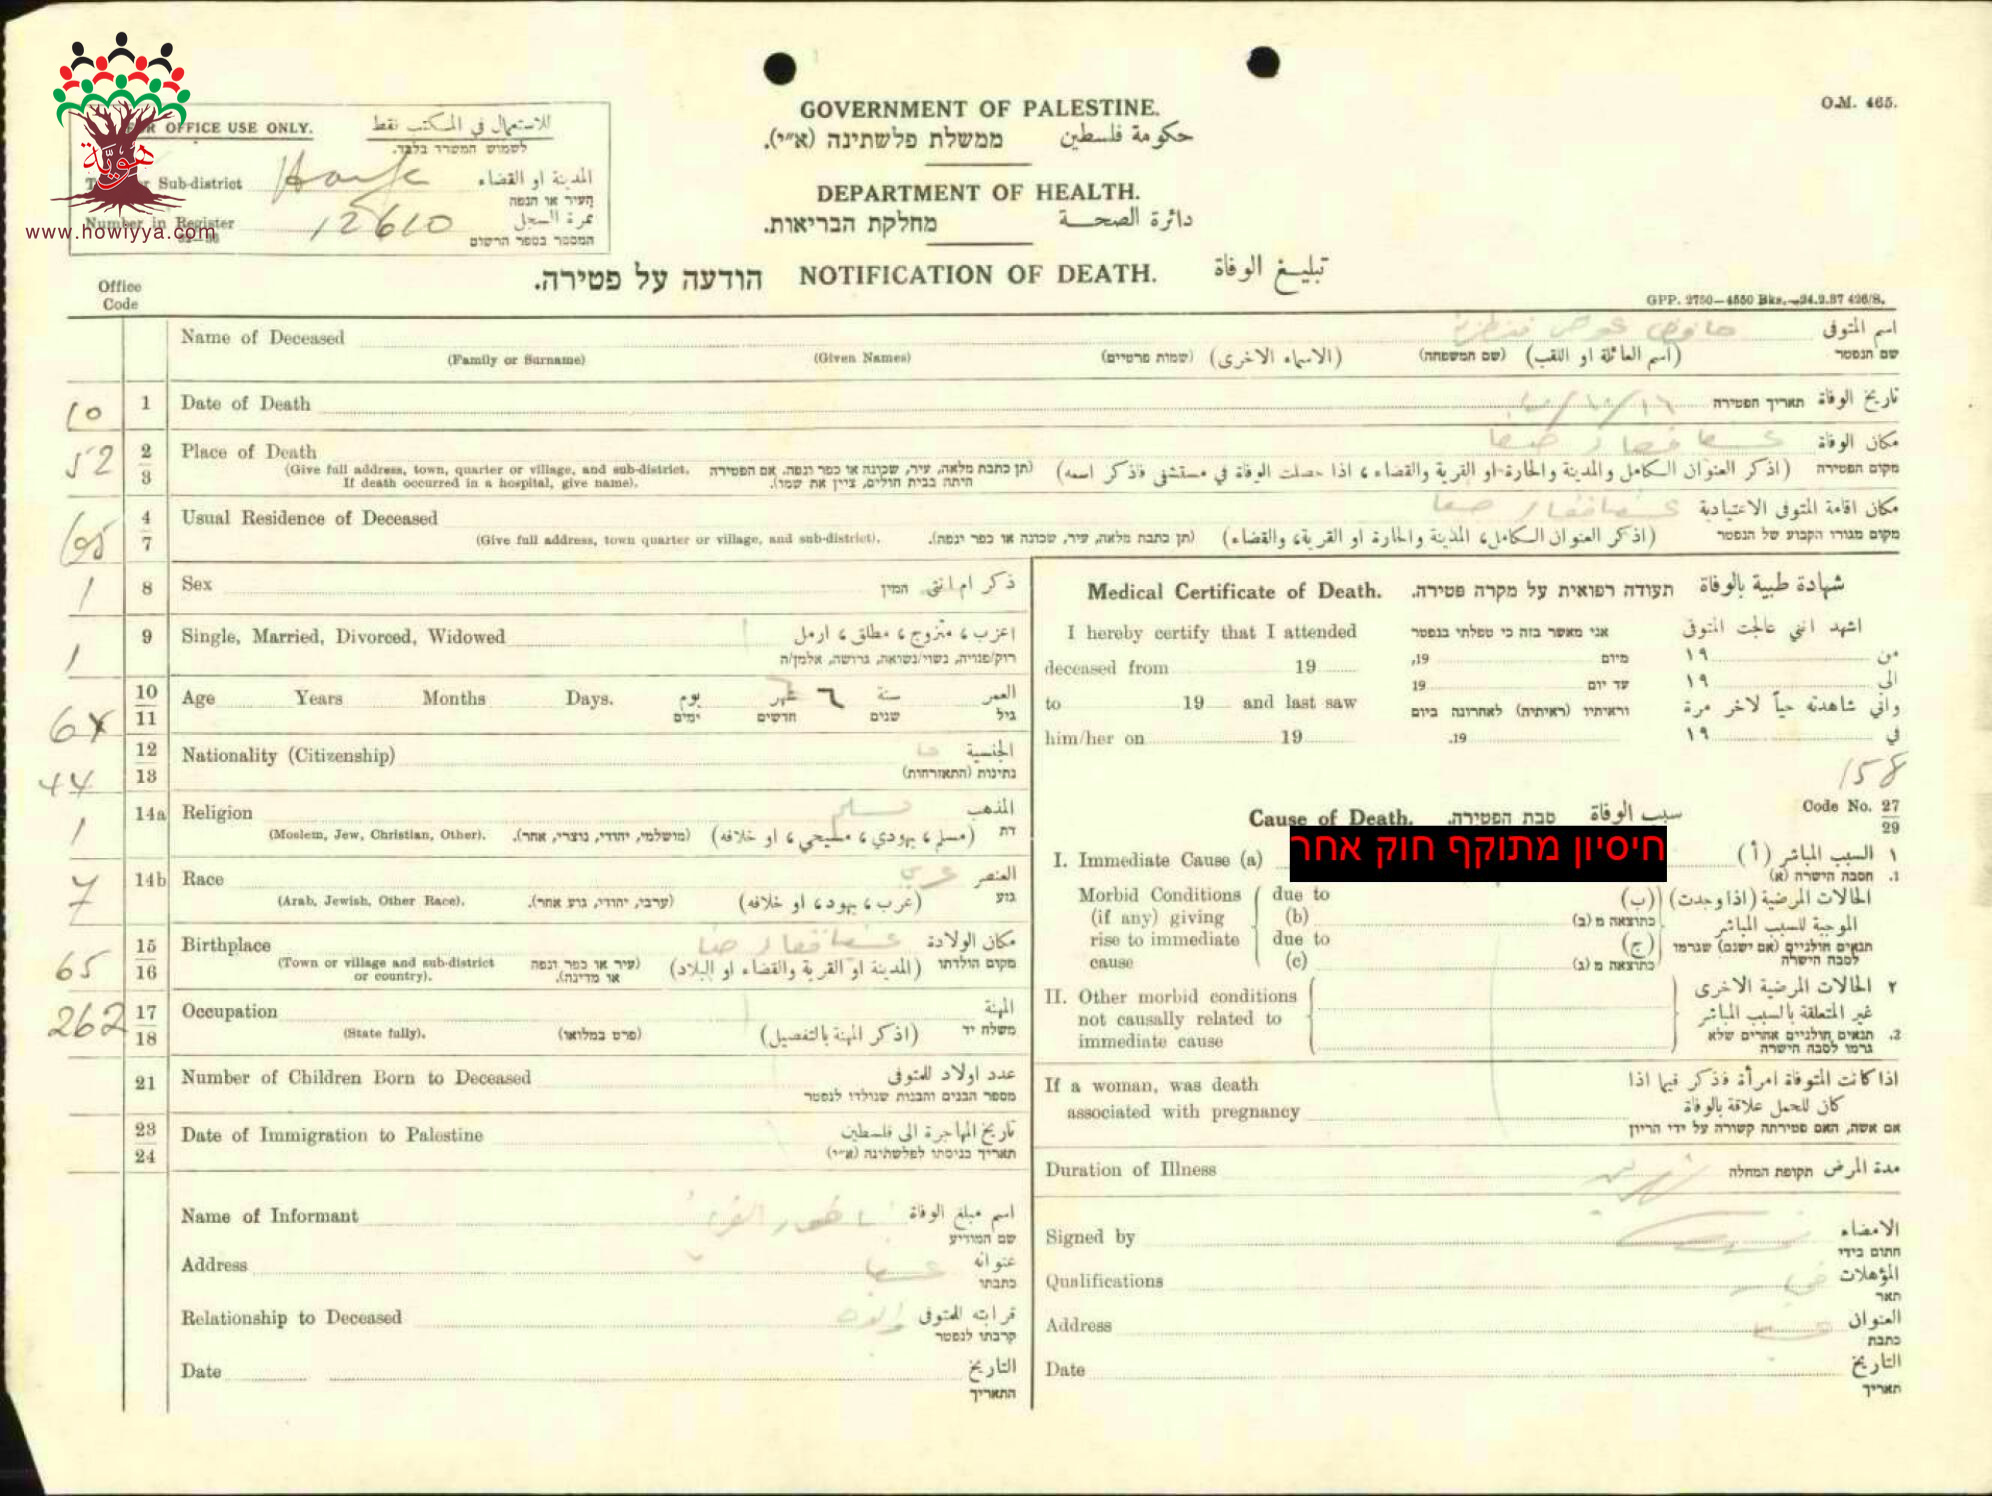 هويّة
www.howiyya.com
OFFICE USE ONLY. للاستعمال في المكتب فقط
לשמוש המשרד בלבד.
Sub-district المدينة او القضاء
העיר או הנפה
Number in Register 12610 نمرة السجل
המספר בספר הרשום
O.M. 465.
GOVERNMENT OF PALESTINE.
ממשלת פלשתינה (א״י). حكومة فلسطين
DEPARTMENT OF HEALTH.
מחלקת הבריאות. دائرة الصحة
הודעה על פטירה. NOTIFICATION OF DEATH. تبليغ الوفاة
Office
Code
GPP. 2750—4550 Bks.—24.9.37 426/S.
Name of Deceased اسم المتوفى
(Family or Surname) (Given Names) (שמות פרטיים) (الاسماء الاخرى) (שם המשפחה) (اسم العائلة او اللقب) שם הנפטר
10 1 Date of Death תאריך הפטירה تاريخ الوفاة
52 2 3 Place of Death مكان الوفاة
(Give full address, town, quarter or village, and sub-district. (תן כתבת מלאה, עיר, שכונה או כפר ונפה. אם הפטירה (اذكر العنوان الكامل والمدينة والحارة او القرية والقضاء ، اذا حصلت الوفاة في مستشفى فاذكر اسمه) מקום הפטירה
If death occurred in a hospital, give name). היתה בבית חולים, ציין את שמו).
65 4 7 Usual Residence of Deceased مكان اقامة المتوفى الاعتيادية
(Give full address, town quarter or village, and sub-district). (תן כתבת מלאה, עיר, שכונה או כפר ונפה). (اذكر العنوان الكامل، المدينة والحارة او القرية، والقضاء) מקום מגורו הקבוע של הנפטר
1 8 Sex המין ذكر ام انثى
1 9 Single, Married, Divorced, Widowed اعزب ، متزوج ، مطلق ، ارمل
רוק/פנויה, נשוי/נשואה, גרושה, אלמן/ה
10 11 Age Years Months Days. يوم شهر ٦ سنة العمر
ימים חדשים שנים גיל
44 12 13 Nationality (Citizenship) الجنسية
נתינות (התאזרחות)
1 14a Religion مسلم المذهب
(Moslem, Jew, Christian, Other). (מושלמי, יהודי, נוצרי, אחר). (مسلم ، يهودي ، مسيحي ، او خلافه) דת
7 14b Race عربي العنصر
(Arab, Jewish, Other Race). (ערבי, יהודי, גזע אחר). (عرب ، يهود ، او خلافه) גזע
65 15 16 Birthplace مكان الولادة
(Town or village and sub-district or country). (עיר או כפר ונפה או מדינה). (المدينة او القرية والقضاء او البلاد) מקום הולדתו
262 17 18 Occupation المهنة
(State fully). (פרט במלואו) (اذكر المهنة بالتفصيل) משלח יד
21 Number of Children Born to Deceased عدد اولاد المتوفى
מספר הבנים והבנות שנולדו לנפטר
23 24 Date of Immigration to Palestine تاريخ المهاجرة الى فلسطين
תאריך כניסתו לפלשתינה (א״י)
Name of Informant اسم مبلغ الوفاة
שם המודיע
Address عنوانه
כתבתו
Relationship to Deceased والده قرابته للمتوفى
קרבתו לנפטר
Date التاريخ
התאריך
Medical Certificate of Death. תעודה רפואית על מקרה פטירה. شهادة طبية بالوفاة
I hereby certify that I attended אני מאשר בזה כי טפלתי בנפטר اشهد انني عالجت المتوفى
deceased from 19 מיום 19, من ١٩
to 19 and last saw עד יום 19 الى ١٩
וראיתיו (ראיתיה) לאחרונה ביום واني شاهدته حياً لاخر مرة
him/her on 19 19. في ١٩
158
Cause of Death. סבת הפטירה. سبب الوفاة Code No. 27 29
I. Immediate Cause (a) חיסיון מתוקף חוק אחר ١ السبب المباشر (أ)
1. הסבה הישרה (א)
Morbid Conditions (if any) giving rise to immediate cause
due to (b) כתוצאה מ (ב) (ب)
due to (c) כתוצאה מ (ג) (ج)
الحالات المرضية (اذا وجدت) الموجبة للسبب المباشر
תנאים חולניים (אם ישנם) שגרמו לסבה הישרה
II. Other morbid conditions not causally related to immediate cause
٢ الحالات المرضية الاخرى غير المتعلقة بالسبب المباشر
2. תנאים חולניים אחרים שלא גרמו לסבה הישרה
If a woman, was death associated with pregnancy
اذا كانت المتوفاة امرأة فذكر فيما اذا كان للحمل علاقة بالوفاة
אם אשה, האם פטירתה קשורה על ידי הריון
Duration of Illness תקופת המחלה مدة المرض
Signed by الامضاء
חתום בידי
Qualifications المؤهلات
תאר
Address العنوان
כתבת
Date التاريخ
תאריך